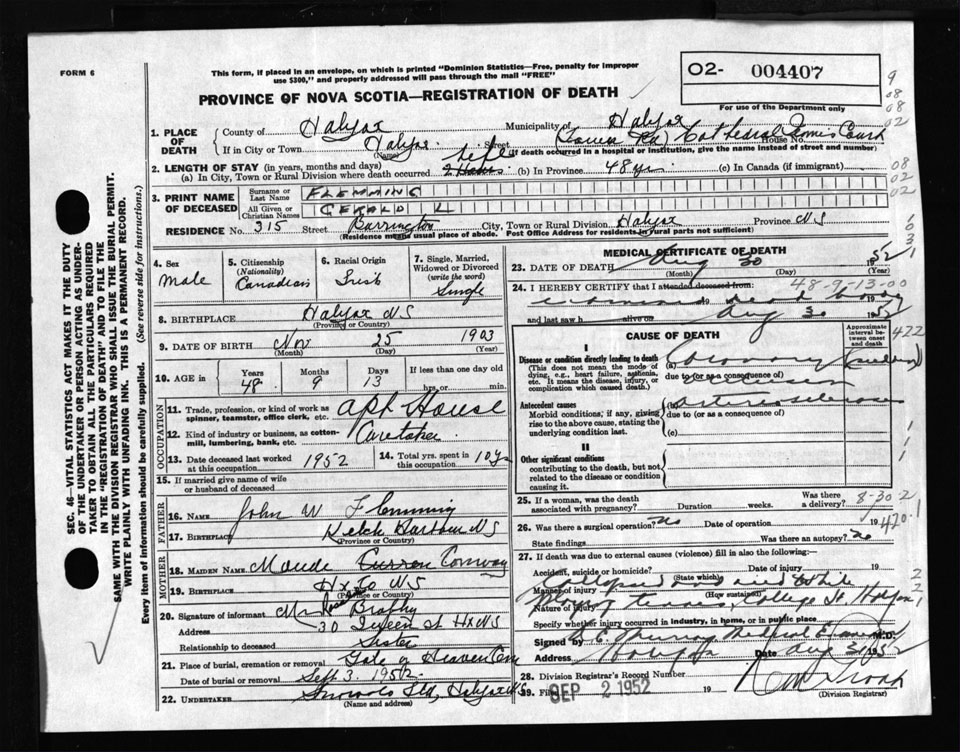 FORM 6
This form, if placed in an envelope, on which is printed "Dominion Statistics—Free, penalty for improper
use $300," and properly addressed will pass through the mail "FREE"
PROVINCE OF NOVA SCOTIA—REGISTRATION OF DEATH
O2- 004407
For use of the Department only
9
08
08
02
1. PLACE OF DEATH
County of Halifax Municipality of Halifax
If in City or Town Halifax Street Cathedral Tennis Court House No.
(Name) (If death occurred in a hospital or institution, give the name instead of street and number)
2. LENGTH OF STAY (in years, months and days)
(a) In City, Town or Rural Division where death occurred life (b) In Province 48 yrs (c) In Canada (if immigrant)
08
02
02
3. PRINT NAME OF DECEASED
Surname or Last Name FLEMMING
All Given or Christian Names GERALD
RESIDENCE No. 315 Street Barrington City, Town or Rural Division Halifax Province NS
(Residence means usual place of abode. Post Office Address for residents in rural parts not sufficient)
SEC. 46—VITAL STATISTICS ACT MAKES IT THE DUTY
OF THE UNDERTAKER OR PERSON ACTING AS UNDER-
TAKER TO OBTAIN ALL THE PARTICULARS REQUIRED
IN THE "REGISTRATION OF DEATH" AND TO FILE THE
SAME WITH THE DIVISION REGISTRAR WHO SHALL ISSUE THE BURIAL PERMIT.
WRITE PLAINLY WITH UNFADING INK. THIS IS A PERMANENT RECORD.
Every item of information should be carefully supplied. (See reverse side for instructions.)
4. Sex Male
5. Citizenship (Nationality) Canadian
6. Racial Origin Irish
7. Single, Married, Widowed or Divorced (write the word) Single
8. BIRTHPLACE Halifax NS
(Province or Country)
9. DATE OF BIRTH Nov 25 1903
(Month) (Day) (Year)
10. AGE in Years 48 Months 9 Days 13 If less than one day old hrs. or min.
OCCUPATION
11. Trade, profession, or kind of work as spinner, teamster, office clerk, etc. Apt House
12. Kind of industry or business, as cotton-mill, lumbering, bank, etc. Caretaker
13. Date deceased last worked at this occupation 1952
14. Total yrs. spent in this occupation 10 yrs
15. If married give name of wife or husband of deceased
FATHER
16. NAME John W Flemming
17. BIRTHPLACE Ketch Harbour NS
(Province or Country)
MOTHER
18. MAIDEN NAME Maude Curren Conway
19. BIRTHPLACE Hx Co NS
(Province or Country)
20. Signature of informant Brophy
Address 30 Queen St Hx NS
Relationship to deceased Sister
21. Place of burial, cremation or removal Gate of Heaven Cem
Date of burial or removal Sept 3. 1952
22. UNDERTAKER Snows Ltd, Halifax NS
(Name and address)
MEDICAL CERTIFICATE OF DEATH
23. DATE OF DEATH Aug 30 1952
(Month) (Day) (Year)
48-9-13-00
24. I HEREBY CERTIFY that I attended deceased from:
examined dead body 19
and last saw h alive on Aug 30 1952
CAUSE OF DEATH
Approximate interval between onset and death
422
I
Disease or condition directly leading to death
(This does not mean the mode of dying, e.g., heart failure, asthenia, etc. It means the disease, injury, or complication which caused death.)
(a) Coronary (sudden)
due to (or as a consequence of)
Antecedent causes
Morbid conditions, if any, giving rise to the above cause, stating the underlying condition last.
(b) Arteriosclerosis
due to (or as a consequence of)
(c)
II
Other significant conditions
contributing to the death, but not related to the disease or condition causing it.
25. If a woman, was the death associated with pregnancy? Duration weeks. Was there a delivery?
8-30-2
26. Was there a surgical operation? no Date of operation 19
420.1
State findings Was there an autopsy? no
27. If death was due to external causes (violence) fill in also the following:—
Accident, suicide or homicide? Date of injury 19
(State which)
Manner of injury Collapsed and died while
(How sustained)
Nature of injury playing tennis, College St. Halifax
Specify whether injury occurred in industry, in home, or in public place
Signed by Murray Medical Examiner M.D.
Address Halifax Date Aug 31 1952
28. Division Registrar's Record Number
29. Filed SEP 2 1952 19
(Division Registrar)